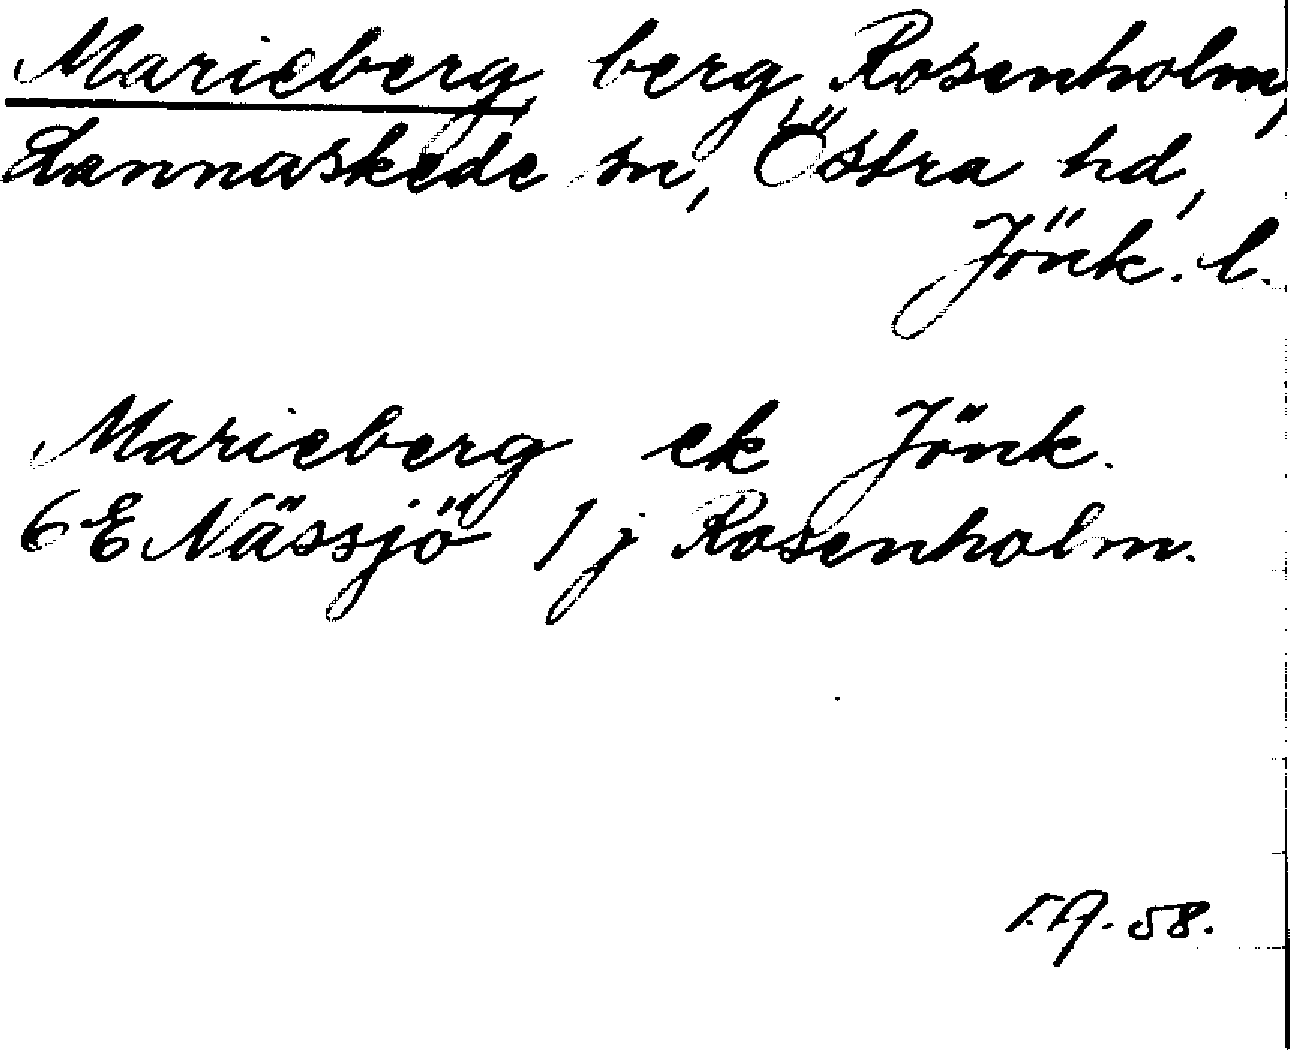 Marieberg, berg, Rosenholm,
Lannaskede sn, Östra hd,
Jönk. l.
Marieberg ek Jönk.
6E Nässjö 1 j Rosenholm.
58.